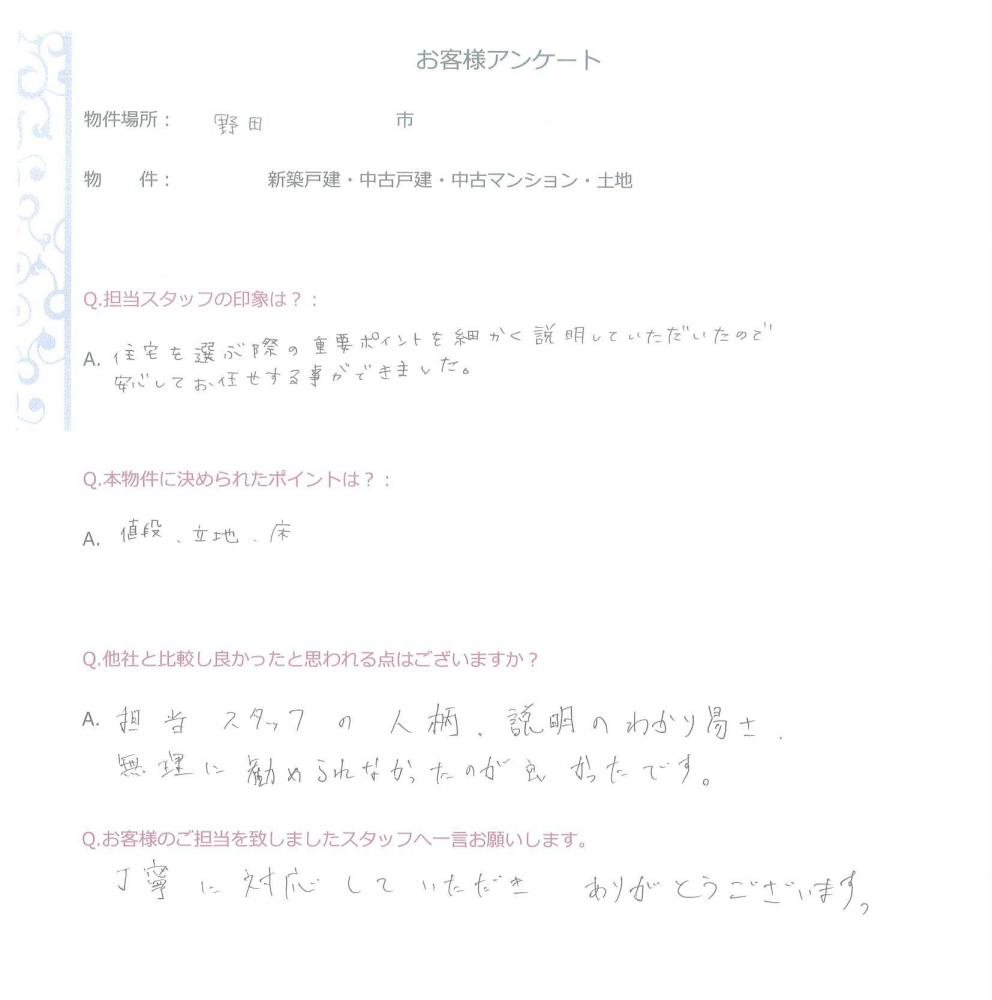 お客様アンケート
物件場所： 野田 市
物　件： 新築戸建・中古戸建・中古マンション・土地
Q.担当スタッフの印象は？：
A. 住宅を選ぶ際の重要ポイントを細かく説明していただいたので
安心してお任せする事ができました。
Q.本物件に決められたポイントは？：
A. 値段、立地、床
Q.他社と比較し良かったと思われる点はございますか？
A. 担当スタッフの人柄、説明のわかり易さ、
無理に勧められなかったのが良かったです。
Q.お客様のご担当を致しましたスタッフへ一言お願いします。
丁寧に対応していただき ありがとうございます。